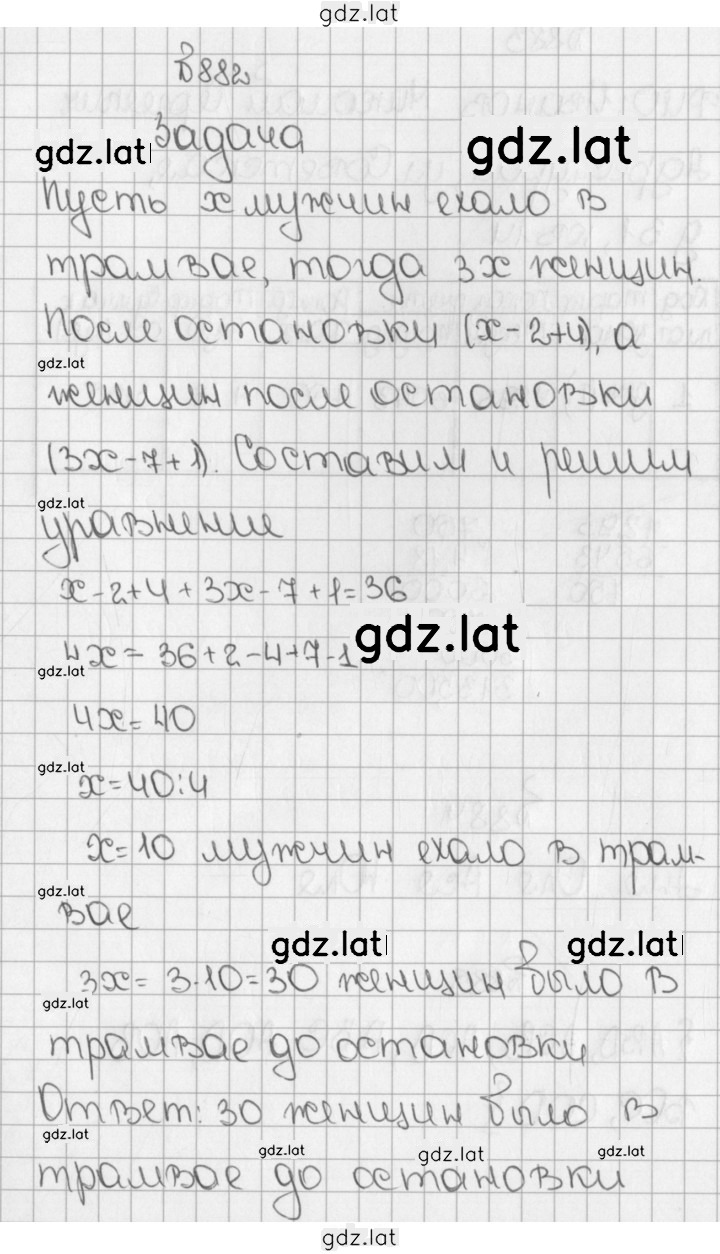 gdz.lat
В882
Задача
gdz.lat
gdz.lat
Пусть x мужчин ехало в
трамвае, тогда 3x женщин.
После остановки (x-2+4), а
gdz.lat
женщин после остановки
(3x-7+1). Составим и решим
gdz.lat
уравнение
x-2+4+3x-7+1=36
4x=36+2-4+7-1
gdz.lat
gdz.lat
4x=40
gdz.lat
x=40:4
x=10 мужчин ехало в трам-
gdz.lat
вае
gdz.lat
gdz.lat
3x=3·10=30 женщин было в
gdz.lat
трамвае до остановки
Ответ: 30 женщин было в
gdz.lat
gdz.lat
gdz.lat
gdz.lat
трамвае до остановки
gdz.lat